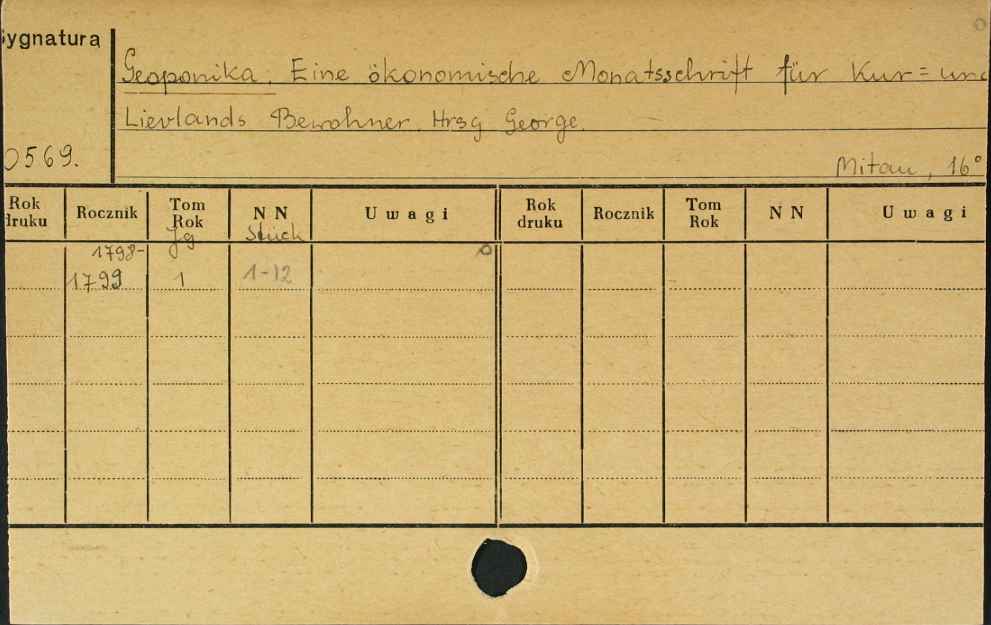 Sygnatura
Geoponika. Eine ökonomische Monatsschrift für Kur= und
Lievlands Bewohner. Hrsg George.
0569.
Mitau, 16°
Rok druku Rocznik Tom Rok N N Uwagi Rok druku Rocznik Tom Rok N N Uwagi
Jg Stück
1798-
1799 1 1-12